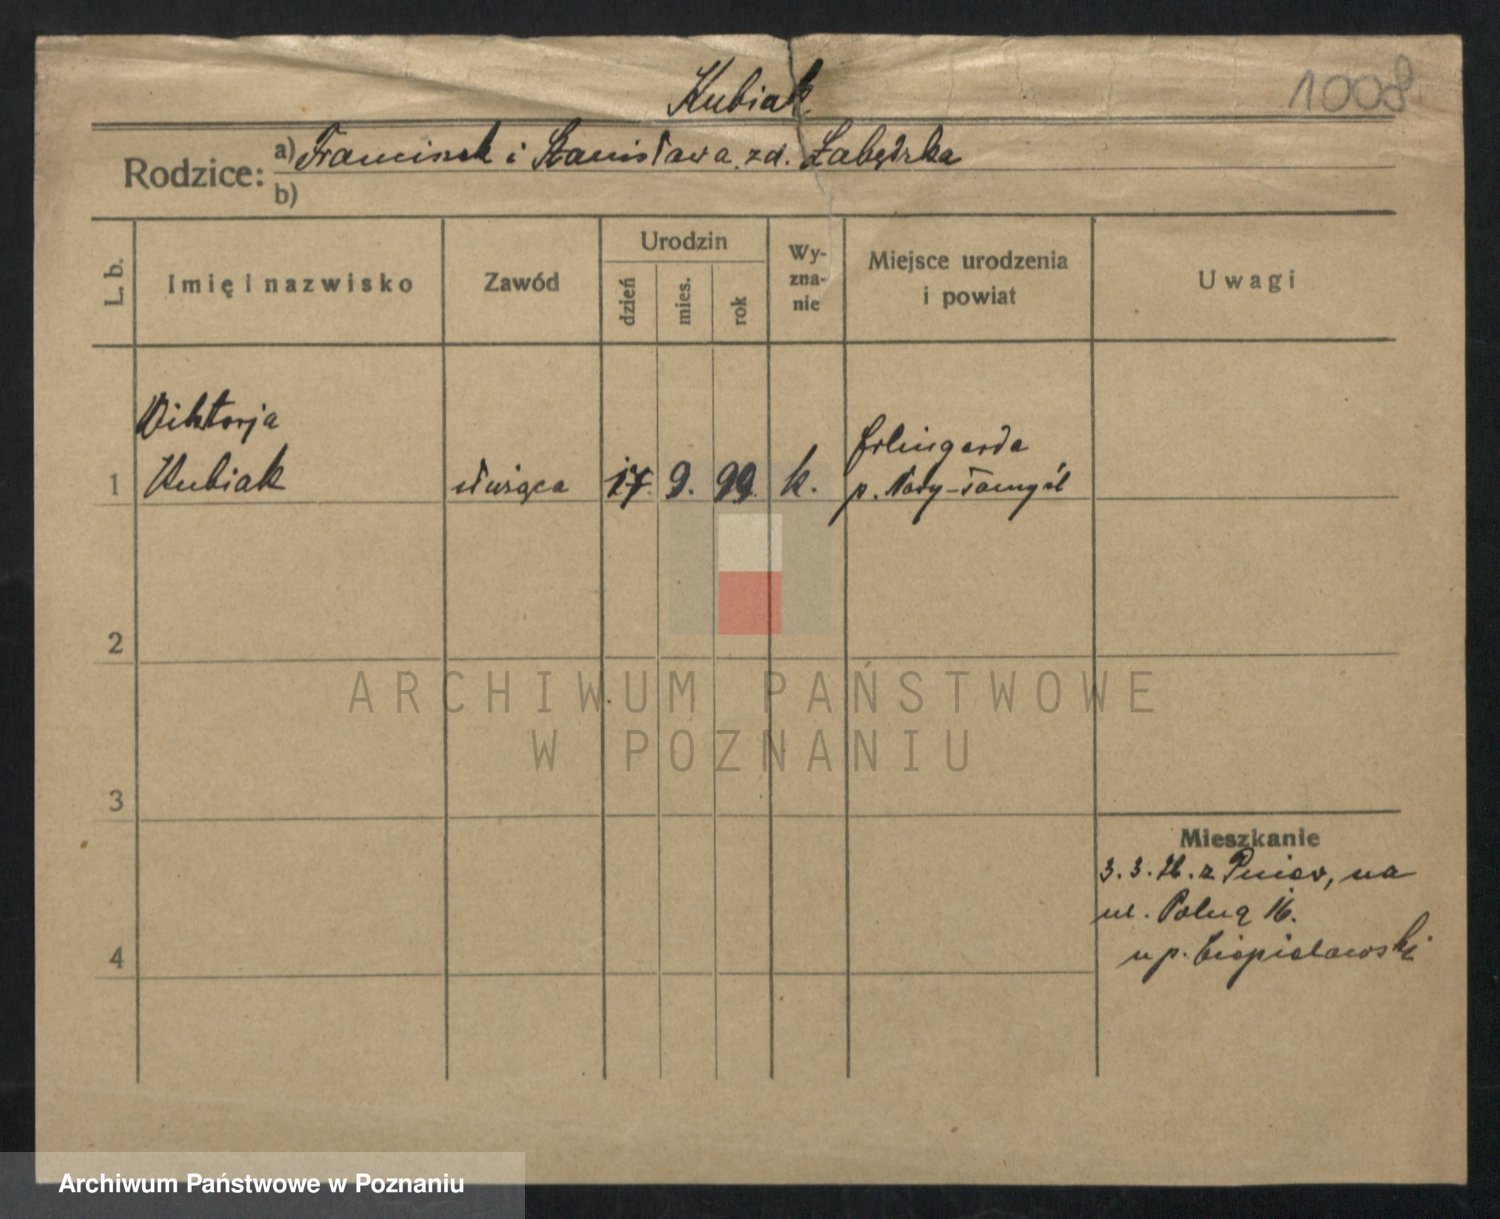 Kubiak
1008
Rodzice: a) Franciszek i Stanisława zd. Łabędzka
b)
L. b.
Imię i nazwisko
Zawód
Urodzin
dzień
mies.
rok
Wy-
zna-
nie
Miejsce urodzenia
i powiat
Uwagi
Wiktorja
1 Kubiak służąca 17. 9. 99. k.
p. Nowy-Tomyśl
2
3
4
Mieszkanie
3. 3. 26. z Pniew, na
ul. Polną 16.
u p.
ARCHIWUM PAŃSTWOWE
W POZNANIU
Archiwum Państwowe w Poznaniu